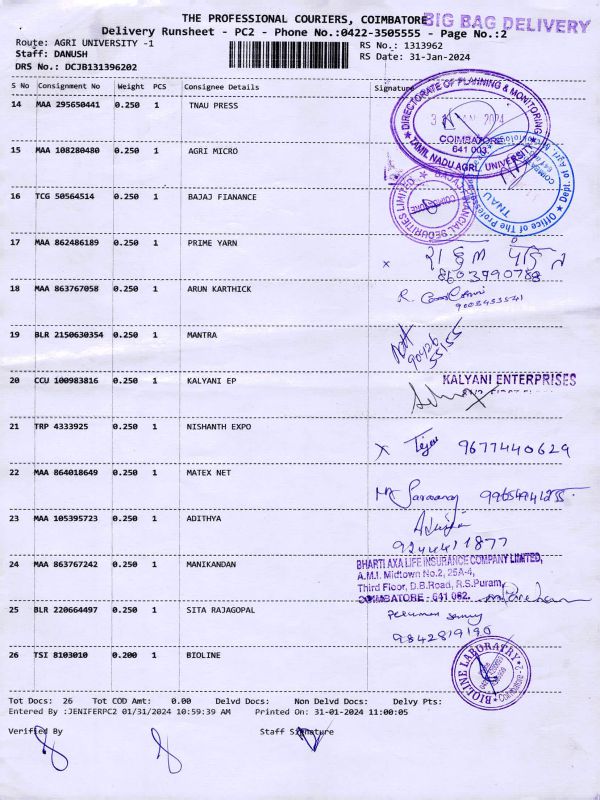 THE PROFESSIONAL COURIERS, COIMBATORE
BIG BAG DELIVERY
Delivery Runsheet - PC2 - Phone No.:0422-3505555 - Page No.:2
Route: AGRI UNIVERSITY -1
RS No.: 1313962
Staff: DANUSH
RS Date: 31-Jan-2024
DRS No.: DCJB131396202
S No Consignment No Weight PCS Consignee Details Signature
14 MAA 295650441 0.250 1 TNAU PRESS
DIRECTORATE OF PLANNING & MONITORING
JAN 2024
COIMBATORE
641 003
TAMIL NADU AGRI. UNIVERSITY
15 MAA 108280480 0.250 1 AGRI MICRO
Office of The
TNAU
16 TCG 50564514 0.250 1 BAJAJ FIANANCE
SECURITIES LIMITED
17 MAA 862486189 0.250 1 PRIME YARN
x
8603990788
18 MAA 863767058 0.250 1 ARUN KARTHICK
R.
9003453541
19 BLR 2150630354 0.250 1 MANTRA
90426
55155
20 CCU 100983816 0.250 1 KALYANI EP
KALYANI ENTERPRISES
21 TRP 4333925 0.250 1 NISHANTH EXPO
x 9677440629
22 MAA 864018649 0.250 1 MATEX NET
23 MAA 105395723 0.250 1 ADITHYA
9244411877
24 MAA 863767242 0.250 1 MANIKANDAN
BHARTI AXA LIFE INSURANCE COMPANY LIMITED,
A.M.I. Midtown No.2, 25A-4,
Third Floor, D.B.Road, R.S.Puram,
COIMBATORE - 641 002.
25 BLR 220664497 0.250 1 SITA RAJAGOPAL
9842819190
26 TSI 8103010 0.200 1 BIOLINE
BIOLINE LABORATRY
Coimbatore-2
Tot Docs: 26 Tot COD Amt: 0.00 Delvd Docs: Non Delvd Docs: Delvy Pts:
Entered By :JENIFERPC2 01/31/2024 10:59:39 AM Printed On: 31-01-2024 11:00:05
Verified By Staff Signature